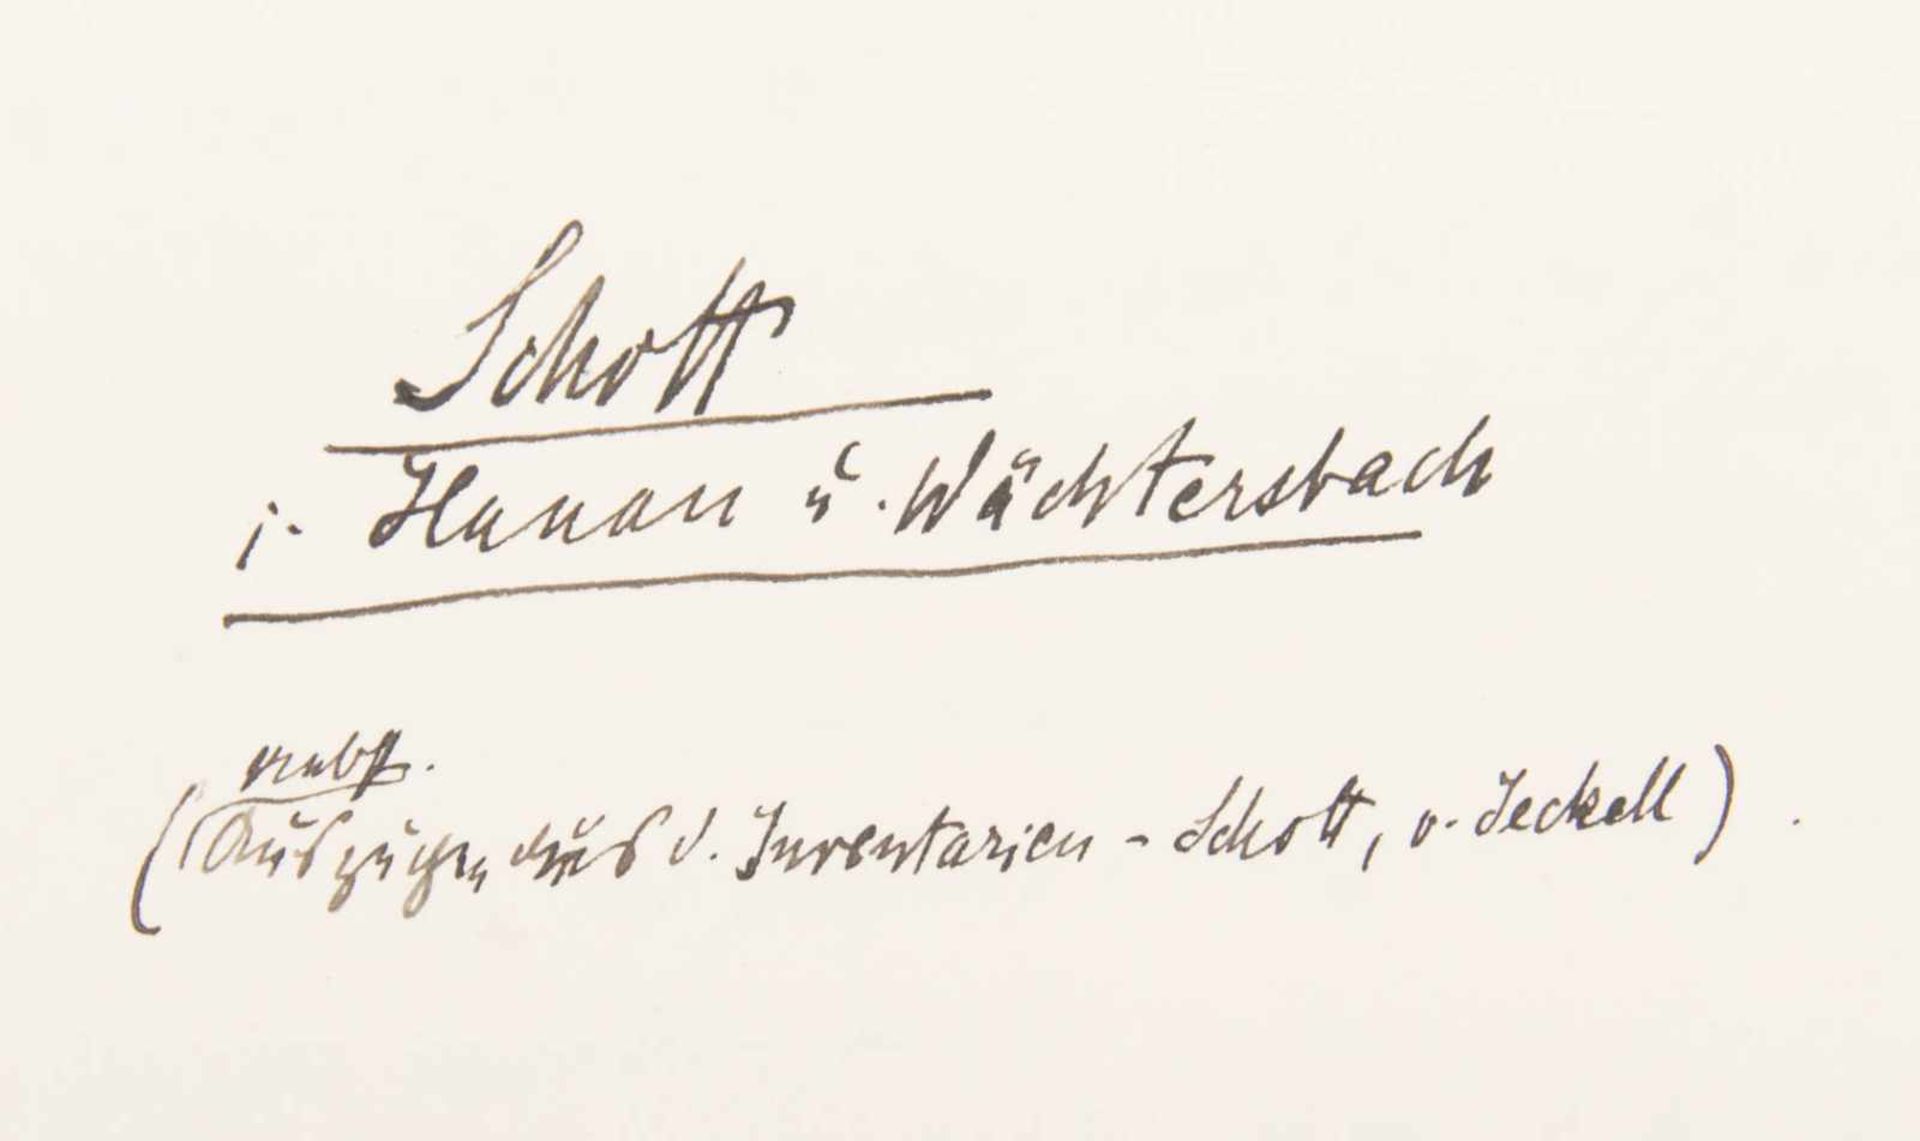 Schott
i. Hanau u. Wächtersbach
nebst.
(Auszügen aus d. Inventarien - Schott, v. Jeckell).